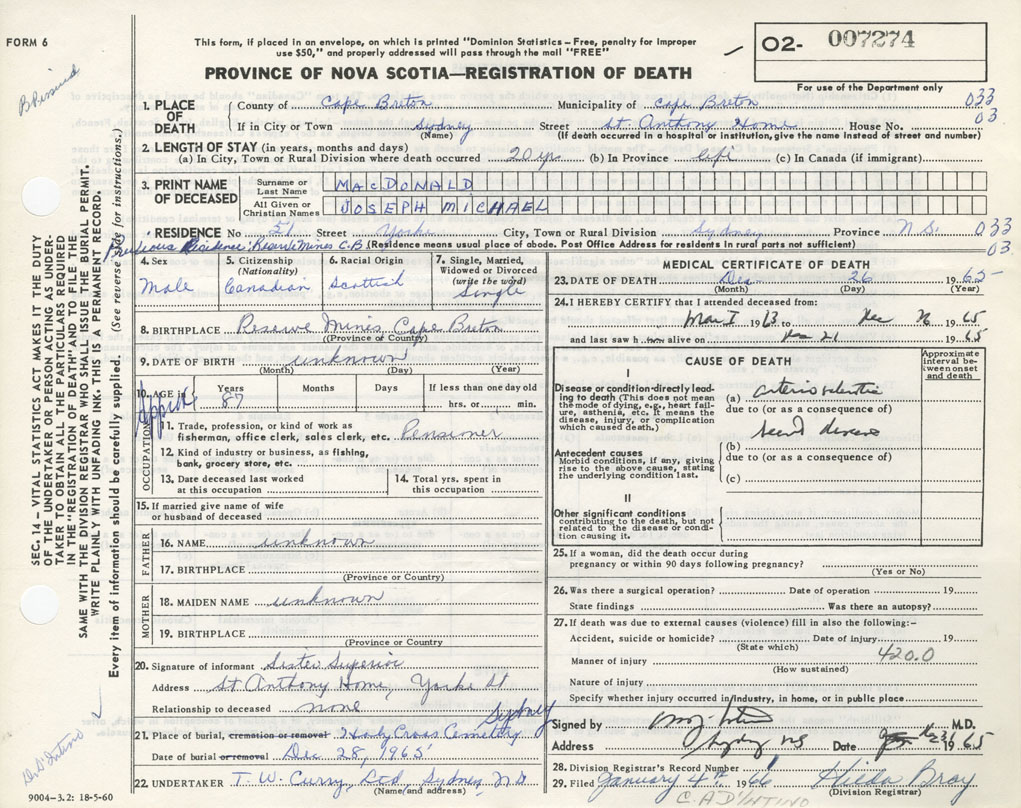 FORM 6
This form, if placed in an envelope, on which is printed "Dominion Statistics – Free, penalty for improper
use $50," and properly addressed will pass through the mail "FREE"
PROVINCE OF NOVA SCOTIA—REGISTRATION OF DEATH
02- 007274
For use of the Department only
1. PLACE OF DEATH
County of Cape Breton Municipality of Cape Breton 033
If in City or Town Sydney Street St. Anthony Home House No. 03.
(If death occurred in a hospital or institution, give the name instead of street and number)
2. LENGTH OF STAY (in years, months and days)
(a) In City, Town or Rural Division where death occurred 20 yrs (b) In Province life (c) In Canada (if immigrant)
3. PRINT NAME OF DECEASED
Surname or Last Name MACDONALD
All Given or Christian Names JOSEPH MICHAEL
RESIDENCE No 51 Street Yorke City, Town or Rural Division Sydney Province N.S. 033
Previous Residence: Reserve Mines C.B. (Residence means usual place of abode. Post Office Address for residents in rural parts not sufficient) 03.
4. Sex Male
5. Citizenship (Nationality) Canadian
6. Racial Origin Scottish
7. Single, Married, Widowed or Divorced (write the word) Single
8. BIRTHPLACE Reserve Mines, Cape Breton
(Province of County)
9. DATE OF BIRTH unknown
(Month) (Day) (Year)
10. AGE in Approx Years 87 Months Days If less than one day old
hrs. or min.
OCCUPATION
11. Trade, profession, or kind of work as
fisherman, office clerk, sales clerk, etc. Pensioner
12. Kind of industry or business, as fishing,
bank, grocery store, etc.
13. Date deceased last worked
at this occupation
14. Total yrs. spent in
this occupation
15. If married give name of wife
or husband of deceased
FATHER
16. NAME unknown
17. BIRTHPLACE
(Province or Country)
MOTHER
18. MAIDEN NAME unknown
19. BIRTHPLACE
(Province or Country
20. Signature of informant Sister Superior
Address St Anthony Home, Yorke St
Relationship to deceased none Sydney
21. Place of burial, cremation or removal Holy Cross Cemetery
Date of burial or removal Dec 28, 1965
22. UNDERTAKER T. W. Curry Ltd, Sydney, N.S.
(Name and address)
9004-3.2: 18-5-60
MEDICAL CERTIFICATE OF DEATH
23. DATE OF DEATH Dec 26 1965
(Month) (Day) (Year)
24. I HEREBY CERTIFY that I attended deceased from:
1963 to Dec 1965
and last saw h alive on Dec 21 1965
CAUSE OF DEATH
Approximate interval between onset and death
I
Disease or condition directly leading to death (This does not mean the mode of dying, e.g., heart failure, asthenia, etc. It means the disease, injury, or complication which caused death.)
(a)
due to (or as a consequence of)
Antecedent causes
Morbid conditions, if any, giving rise to the above cause, stating the underlying condition last.
(b)
due to (or as a consequence of)
(c)
II
Other significant conditions
contributing to the death, but not related to the disease or condition causing it.
25. If a woman, did the death occur during
pregnancy or within 90 days following pregnancy?
(Yes or No)
26. Was there a surgical operation? Date of operation 19
State findings Was there an autopsy?
27. If death was due to external causes (violence) fill in also the following:–
Accident, suicide or homicide? Date of injury 19
(State which)
Manner of injury 420.0
(How sustained)
Nature of injury
Specify whether injury occurred in industry, in home, or in public place
Signed by M.D.
Address Sydney NS Date 1965
28. Division Registrar's Record Number
29. Filed January 4th 1966 Hilda Bray
(Division Registrar)
C. A D'INTINO
SEC. 14 – VITAL STATISTICS ACT MAKES IT THE DUTY
OF THE UNDERTAKER OR PERSON ACTING AS UNDER-
TAKER TO OBTAIN ALL THE PARTICULARS REQUIRED
IN THE "REGISTRATION OF DEATH" AND TO FILE THE
SAME WITH THE DIVISION REGISTRAR WHO SHALL ISSUE THE BURIAL PERMIT.
WRITE PLAINLY WITH UNFADING INK–THIS IS A PERMANENT RECORD.
Every item of information should be carefully supplied. (See reverse side for instructions.)
Dr. D'Intino